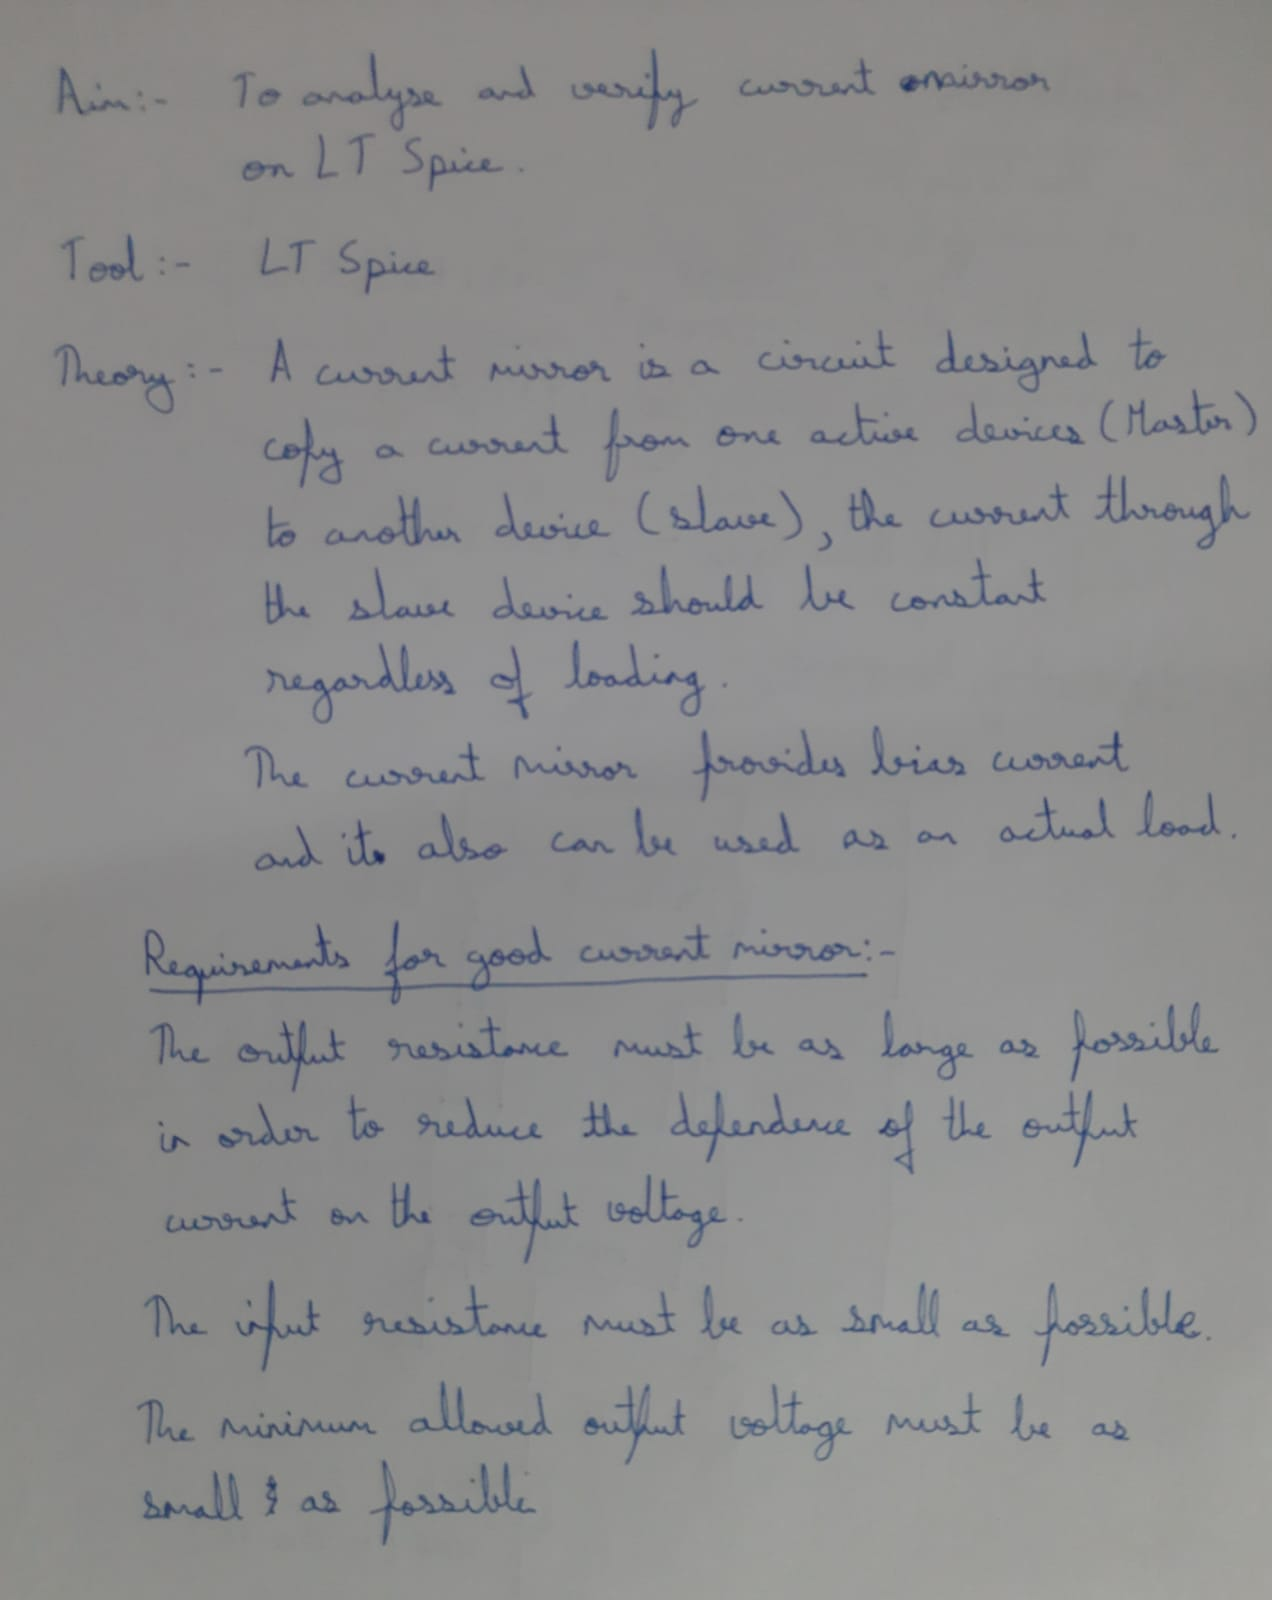 Aim:- To analyse and verify current mirror
on LT Spice.
Tool:- LT Spice
Theory:- A current mirror is a circuit designed to
copy a current from one active devices (Master)
to another device (slave), the current through
the slave device should be constant
regardless of loading.
The current mirror provides bias current
and it also can be used as an actual load.
Requirements for good current mirror:-
The output resistance must be as large as possible
in order to reduce the dependence of the output
current on the output voltage.
The input resistance must be as small as possible.
The minimum allowed output voltage must be as
small as possible